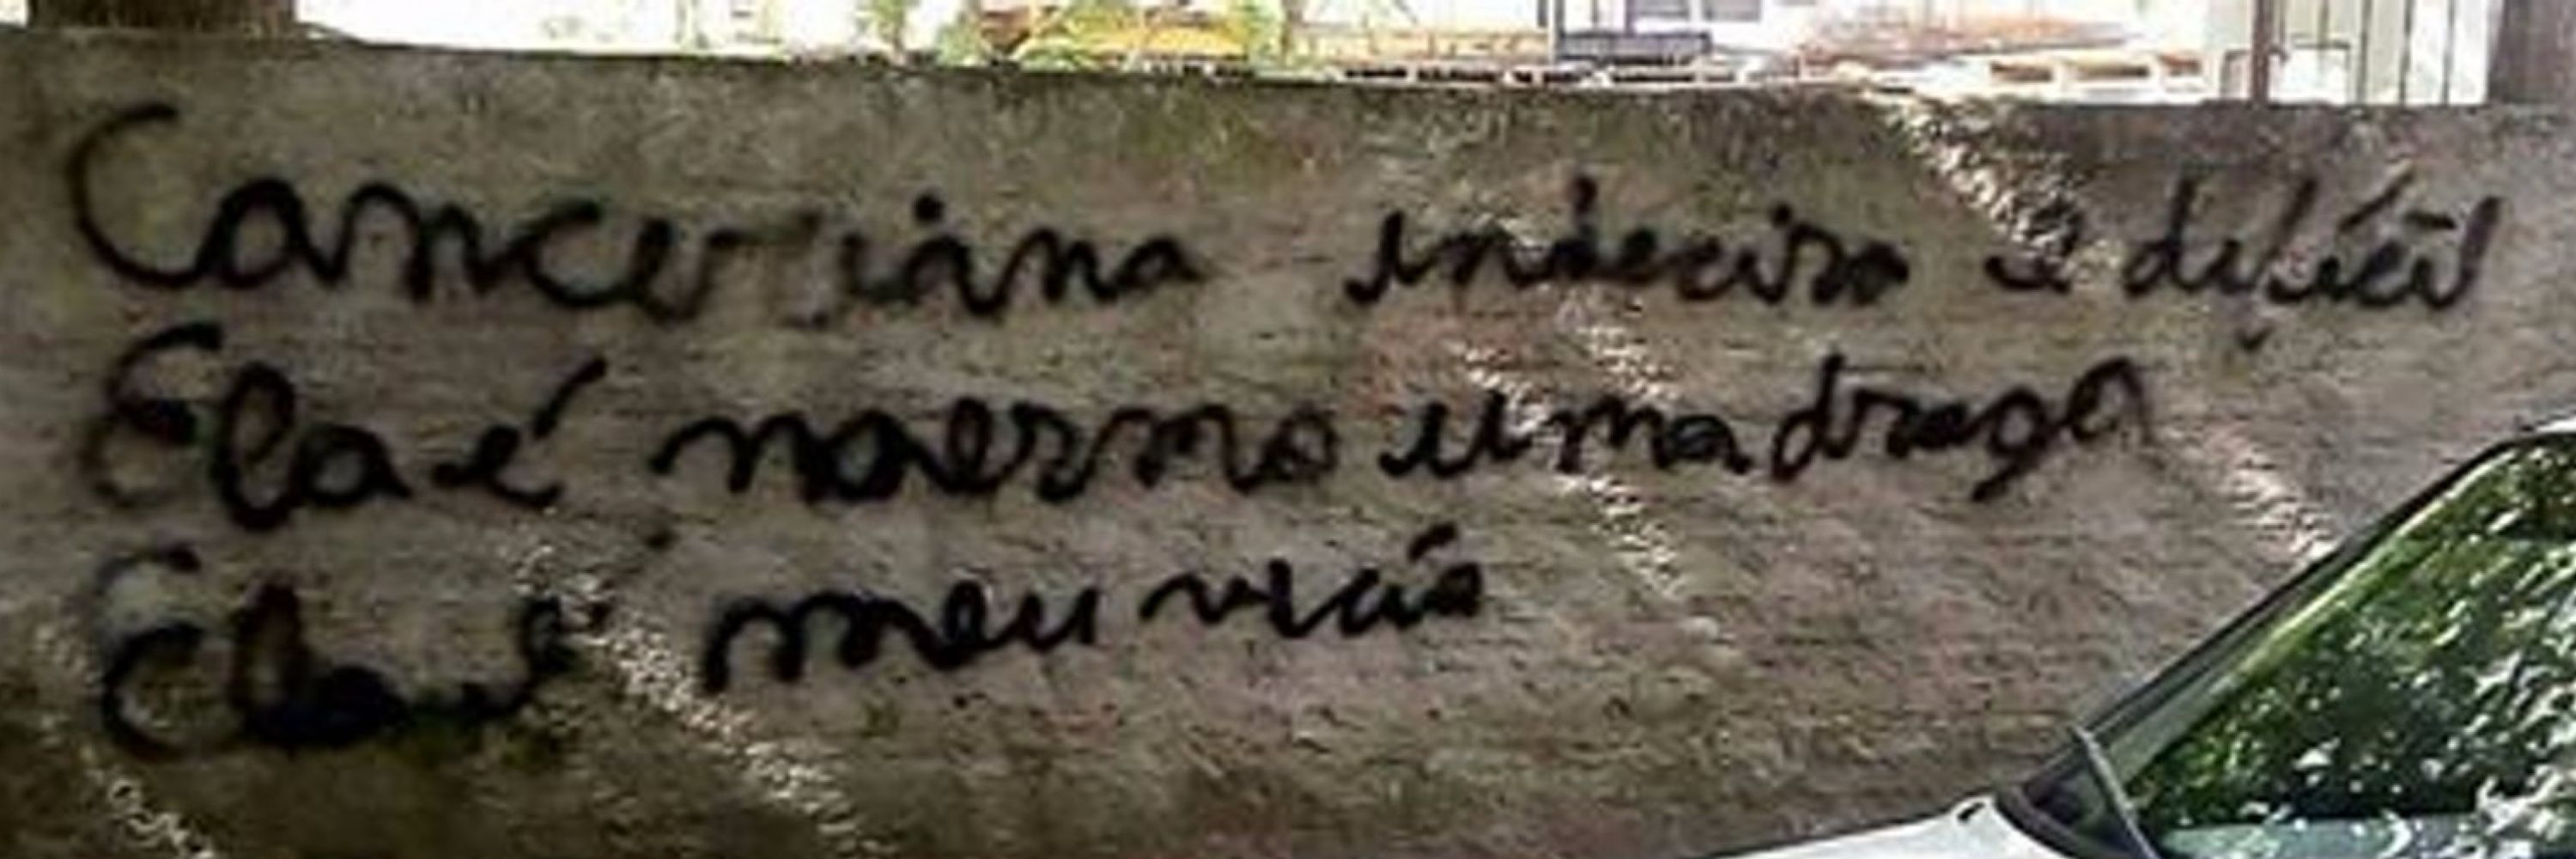 Canceriana indecisa e difícil
Ela é mesmo uma droga
Ela é meu vício